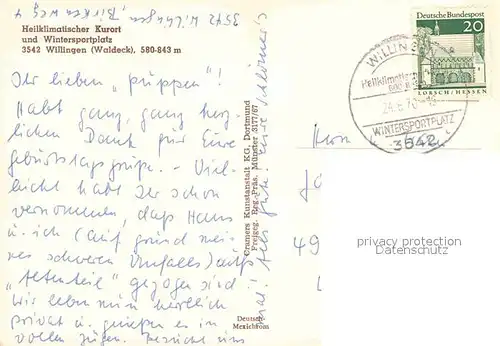 Heilklimatischer Kurort
und Wintersportplatz
3542 Willingen (Waldeck), 580-843 m
3542 Willingen
Birkenweg
Ihr lieben „püppen"!
Habt ganz, ganz herz-
lichen Dank für Eure
Geburtstagsgrüße. - Viel-
leicht habt Ihr schon
vernommen, daß Hans
u. ich (auf Grund mei-
nes schweren Unfalles) aufs
„Altenteil" gezogen sind!
Wir leben nun herrlich
privat u. genießen es in
vollen Zügen. Besucht uns
mal! Alles Gute. Eure
Cramers Kunstanstalt KG, Dortmund
Freigeg. Reg.-Präs. Münster 3177/67
Deutsche
Mexichrom
Deutsche Bundespost
20
LORSCH/HESSEN
WILLING
Heilklimatis
WINTERSPORTPLATZ
3542
Herrn
49
privacy protection
Datenschutz